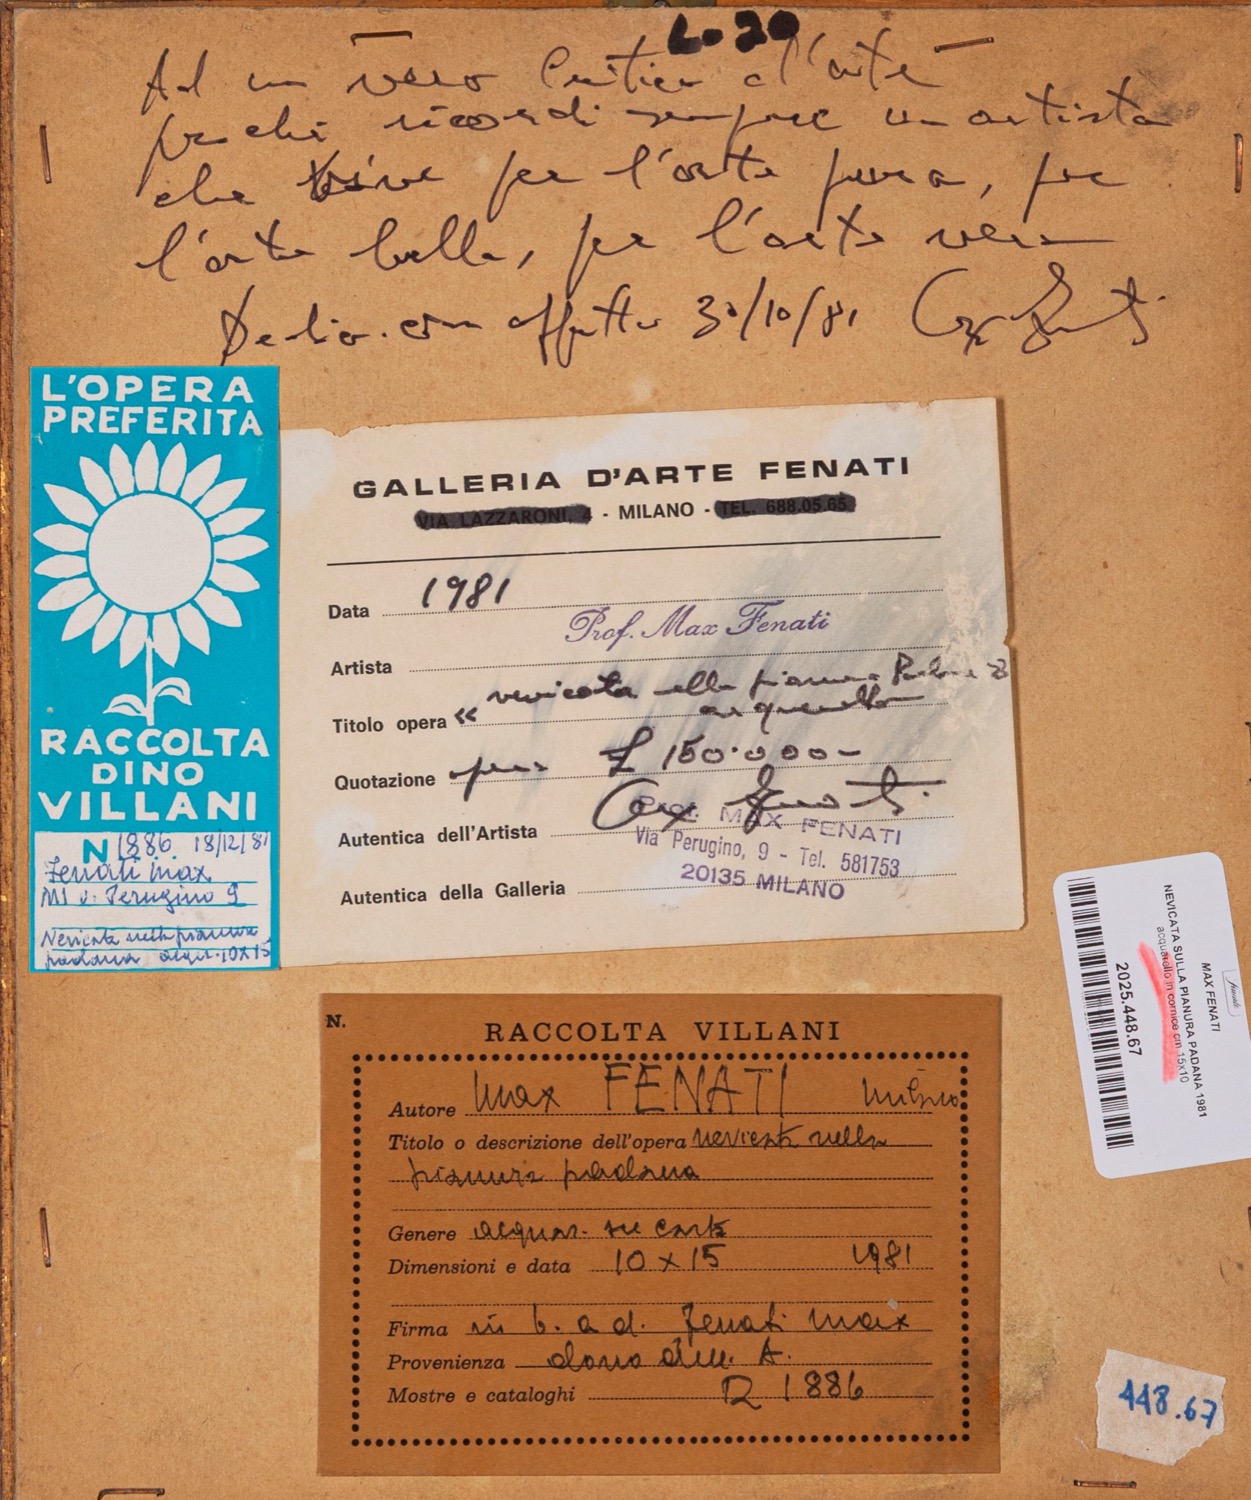 L. 20
Ad un vero Critico d'arte
perché ricordi sempre un artista
che vive per l'arte pura, per
l'arte bella, per l'arte vera
Dedico con affetto 30/10/81 Max Fenati
L'OPERA
PREFERITA
RACCOLTA
DINO
VILLANI
N 1886 18/12/81
Fenati Max
MI v. Perugino 9
Nevicata nella pianura
padana acqu. 10x15
GALLERIA D'ARTE FENATI
VIA LAZZARONI, 4 - MILANO - TEL. 688.05.65
Data 1981
Prof. Max Fenati
Artista
Titolo opera « nevicata nella pianura Padana »
acquerello
Quotazione £ 150.000-
Autentica dell'Artista Max Fenati
Prof. MAX FENATI
Via Perugino, 9 - Tel. 581753
20135 MILANO
Autentica della Galleria
MAX FENATI
NEVICATA SULLA PIANURA PADANA 1981
acquarello in cornice cm 15x10
2025.448.67
N.
RACCOLTA VILLANI
Autore Max FENATI Milano
Titolo o descrizione dell'opera nevicata nella
pianura padana
Genere acquar. su carta
Dimensioni e data 10 x 15 1981
Firma in b. a d. Fenati Max
Provenienza dono dell. A.
Mostre e cataloghi R 1886
448.67